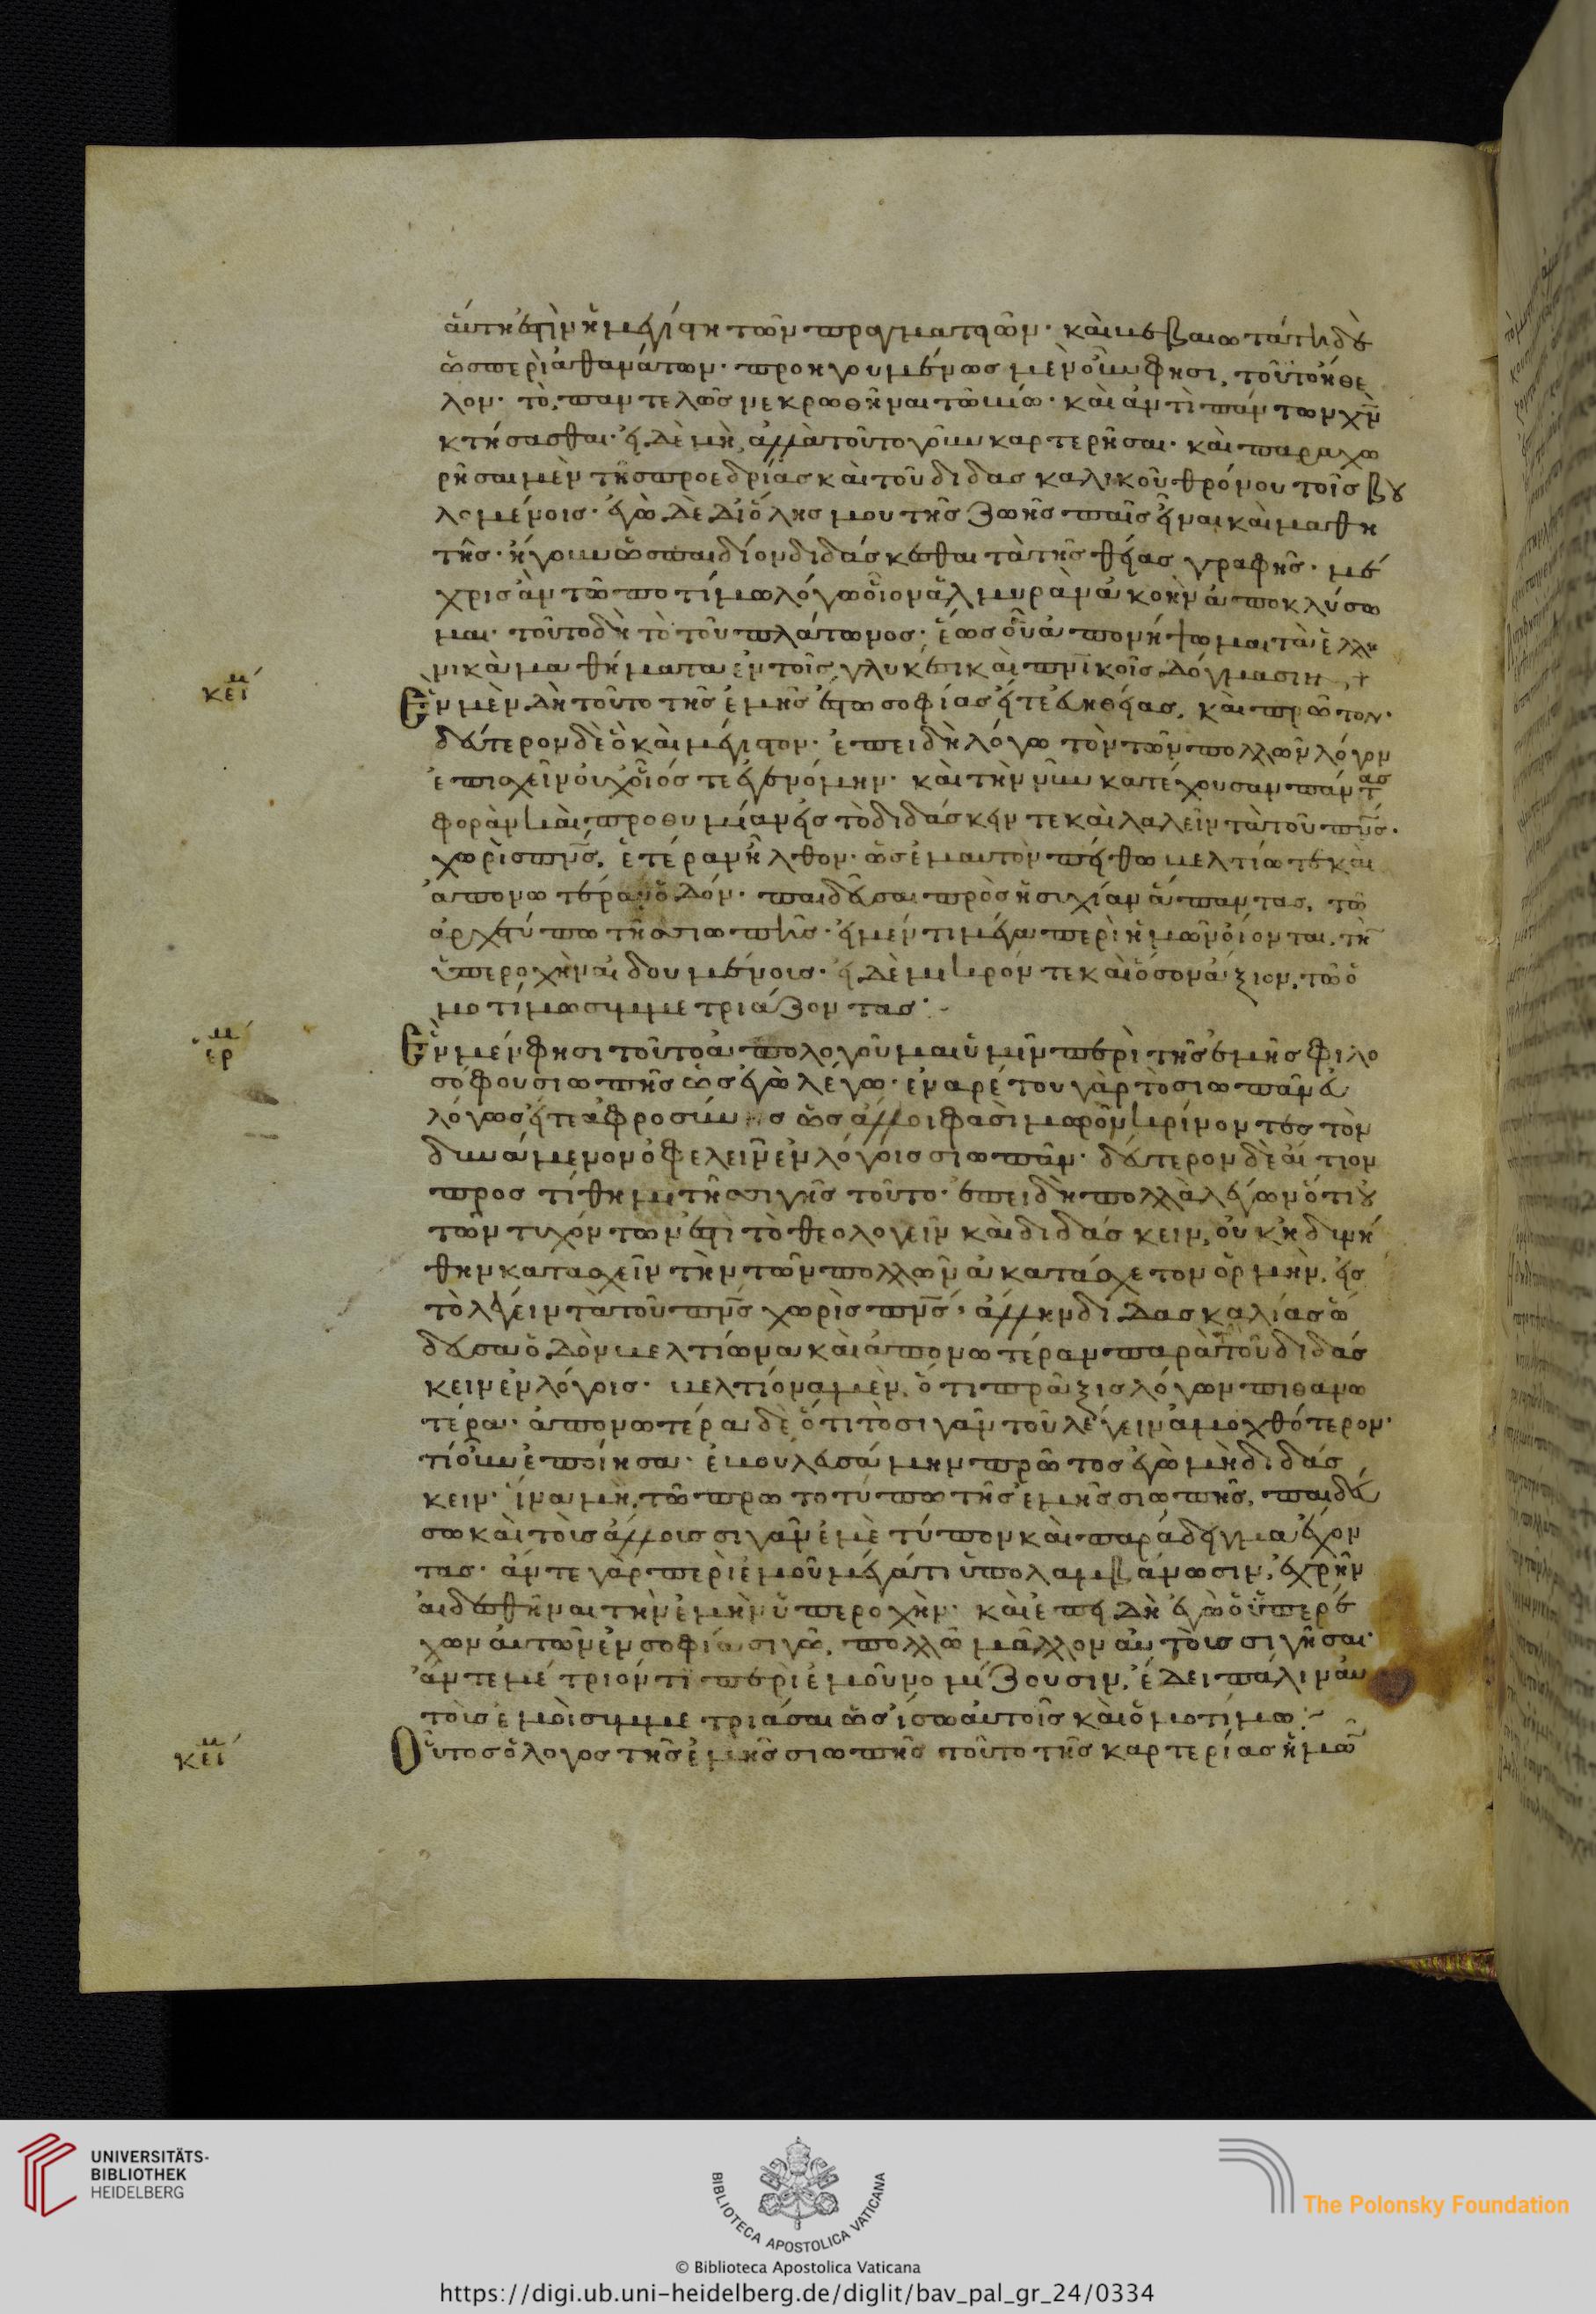 αὕτη ἐστὶν ἡ μεγίστη τῶν πραγματειῶν· καὶ βεβαιωτάτη δὲ
ὡς περὶ ἀθανάτων· προηγουμένως μὲν οὖν φησι, τοῦτο ἤθε
λον· τὸ, παντελῶς νεκρωθῆναι τῶ βίω· καὶ ἀντὶ πάντων χν̅
κτήσασθαι· εἰ δὲ μὴ, ἀλλὰ τοῦτο γοῦν καρτερῆσαι· καὶ παραχω
ρῆσαι μὲν τῆς προεδρίας καὶ τοῦ διδασκαλικοῦ θρόνου τοῖς βου
λομένοις· ἐγὼ δὲ δι' ὅλης μου τῆς ζωῆς παῖς εἶναι καὶ μαθη
τῆς· ἤγουν ὡς παιδίον διδάσκεσθαι τὰ τῆς θείας γραφῆς· μέ
χρις ἂν τῶ ποτίμω λόγω οἷον ἁλμυρὰν ἀκοὴν ἀποκλύσω
μαι· τοῦτο δὴ τὸ τοῦ πλάτωνος· ἕως οὗ ἀπονίψωμαι τὰ ἑλλη
νικὰ μαθήματα ἐν τοῖς γλυκέσι καὶ πνϊκοῖς δόγμασιν +
κεί
Ἓν μὲν δὴ τοῦτο τῆς ἐμῆς ἔστω σοφίας εἴτε εὐηθείας, καὶ πρῶτον·
δεύτερον δὲ ὃ καὶ μέγιστον· ἐπειδὴ λόγω τὸν τῶν πολλῶν λόγον
ἐπισχεῖν οὐχ οἷός τε ἐγενόμην· καὶ τὴν νῦν κατέχουσαν πάντας
φορὰν καὶ προθυμίαν εἰς τὸ διδάσκειν τε καὶ λαλεῖν τὰ τοῦ πνς̅·
χωρὶς πνς̅, ἑτέραν ἦλθον· ὡς ἐμαυτὸν πείθω βελτίω τε καὶ
ἀπονωτέραν ὁδόν· παιδεῦσαι πρὸς ἡσυχίαν ἅπαντας, τῶ
ἀρχετύπω τῆς σιωπῆς· εἰ μέν τι μέγα περὶ ἡμῶν οἴονται, τὴ
ὑπεροχὴν αἰδουμένοις· εἰ δὲ μικρόν τε καὶ ὅσον ἄξιον, τῶ ὁ
μοτίμω συμμετριάζοντας·
ερ
Ἓν μέν φησι τοῦτο ἀπολογοῦμαι ὑμῖν περὶ τῆς ἐμῆς φιλο
σόφου σιωπῆς ὡς ἐγὼ λέγω· ἐναρέτου γὰρ τὸ σιωπᾶν εὐ
λόγως εἴτε ἀφροσύνης ὡς ἄλλοι φασὶ μωρὸν κρίνοντες τὸν
δυνάμενον ὀφελεῖν ἐν λόγοις σιωπᾶν· δεύτερον δὲ αἴτιον
προστίθημι τῆς σιγῆς τοῦτο· ἐπειδὴ πολλὰ λέγων ὅτι οὐ
τῶν τυχόντων ἐστὶ τὸ θεολογεῖν καὶ διδάσκειν, οὐκ ἠδυνή
θην κατασχεῖν τὴν τῶν πολλῶν ἀκατάσχετον ὁρμὴν, εἰς
τὸ λέγειν τὰ τοῦ πνς̅ χωρὶς πνς̅· ἄλλην διδασκαλίας ὥ
δευσα ὁδὸν βελτίωνα καὶ ἀπονωτέραν παρὰ τοῦ διδάσ
κειν ἐν λόγοις· βελτίονα μὲν, ὅτι πρᾶξις λόγων πιθανω
τέρα· ἀπονωτέρα δὲ, ὅτι τὸ σιγᾶν τοῦ λέγειν ἀμοχθότερον·
τί οὖν ἐποίησα· ἐβουλευσάμην πρῶτος ἐγὼ μὴ διδάσ
κειν· ἵνα μὴ, τῶ πρωτοτύπω τῆς ἐμῆς σιωπῆς, παιδεύ
σω καὶ τοὺς ἄλλοις σιγᾶν ἐμὲ τύπον καὶ παράδειγμα ἔχον
τας· ἄν τε γὰρ περὶ ἐμοῦ μέγά τι ὑπολαμβάνωσιν, ἐχρῆν
αἰδεσθῆναι τὴν ἐμὴν ὑπεροχὴν· καὶ ἐπειδὴ ἐγὼ ὁ ὑπερέ
χων αὐτῶν ἐν σοφία σιγῶ, πολλῶ μᾶλλον αὐτοὺς σιγῆσαι·
ἄν τε μέτριόν τι περὶ ἐμοῦ νομίζουσιν, ἔδει πάλιν αὐ
τοὺς ἐμοὶ συμμετριάσαι ὡς ἴσω αὐτοῖς καὶ ὁμοτίμω·
κεί
Οὗτος ὁ λόγος τῆς ἐμῆς σιωπῆς τοῦτο τῆς καρτερίας ἡμῶ
UNIVERSITÄTS-
BIBLIOTHEK
HEIDELBERG
BIBLIOTECA APOSTOLICA VATICANA
The Polonsky Foundation
© Biblioteca Apostolica Vaticana
https://digi.ub.uni-heidelberg.de/diglit/bav_pal_gr_24/0334